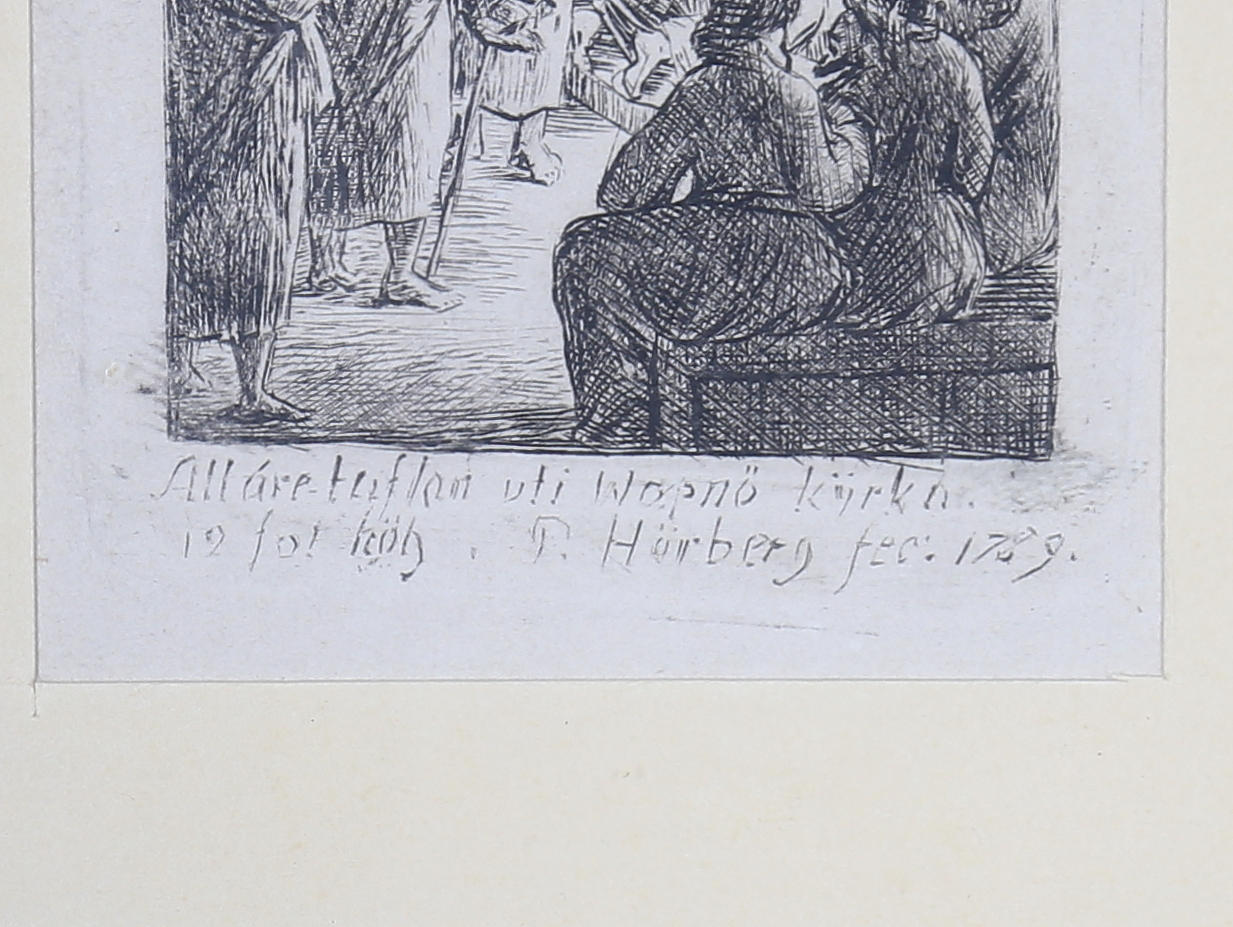 Altáre-taflan uti Wapnö kÿrka.
12 fot hög. P. Hörberg fec: 1789.